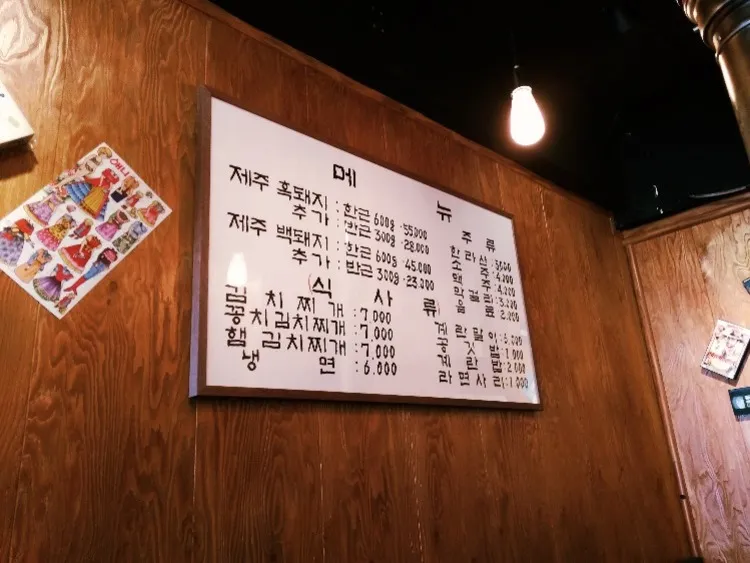 메 뉴
제주 흑돼지 : 한근 600g · 55,000
추가 : 반근 300g · 28,000
제주 백돼지 : 한근 600g · 45,000
추가 : 반근 300g · 23,000
(식 사 류)
김치찌개 : 7,000
꽁치김치찌개 : 7,000
햄 김치찌개 : 7,000
냉 면 : 6,000
주 류
한라산 : 5500
소 주 : 4,000
맥 주 : 4,000
막걸리 : 3,000
음 료 : 2,000
계란말이 : 5,000
공깃밥 : 1,000
계란밥 : 2,000
라면사리 : 1,000